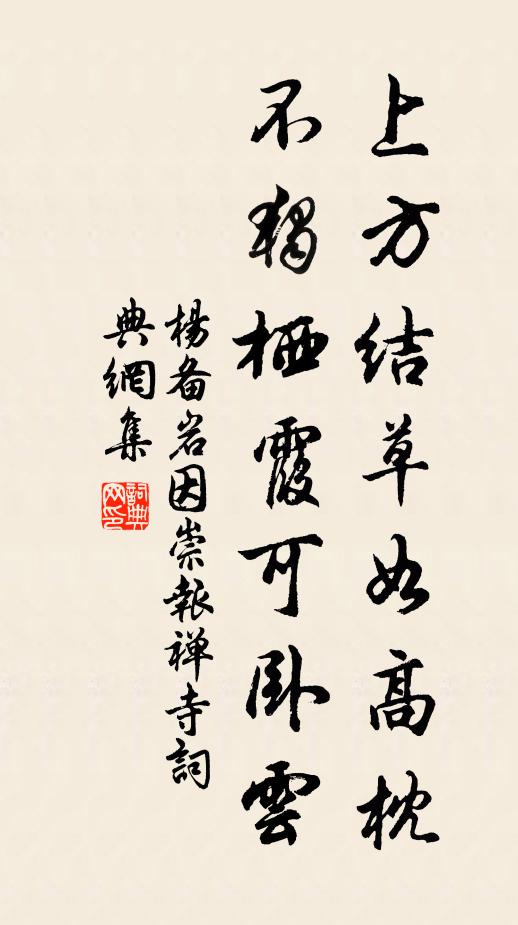 上方结草如高枕
不獨栖霞可卧雲
楊备岩因崇報禅寺詞
典網集
詞典网印